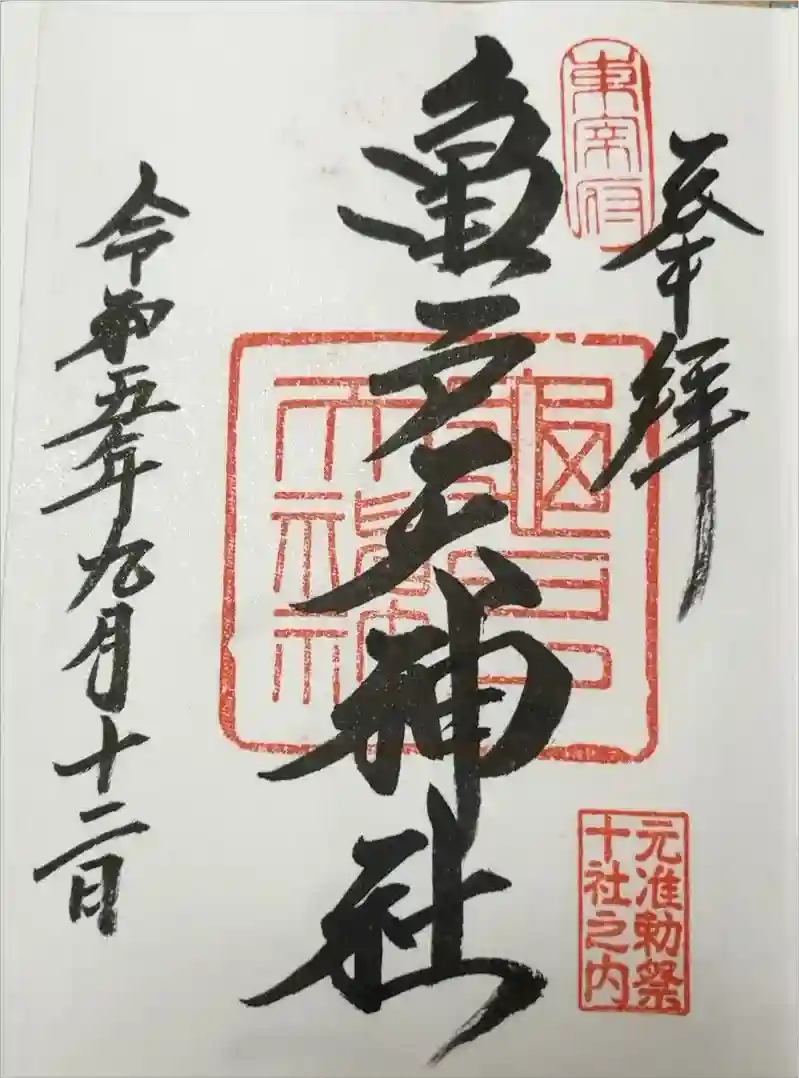 奉拝
東宰府
亀戸天神社
亀戸天神社
元准勅祭
十社之内
令和五年九月十二日